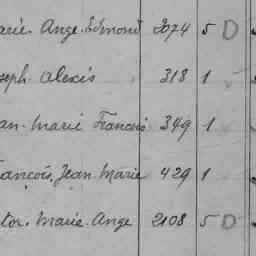 arie. Ange. Edmond 2074 5 D
seph. Alexis 318 1
an. Marie François 349 1
rançois. Jean. Marie 429 1
ctor. Marie. Ange 2108 5 D